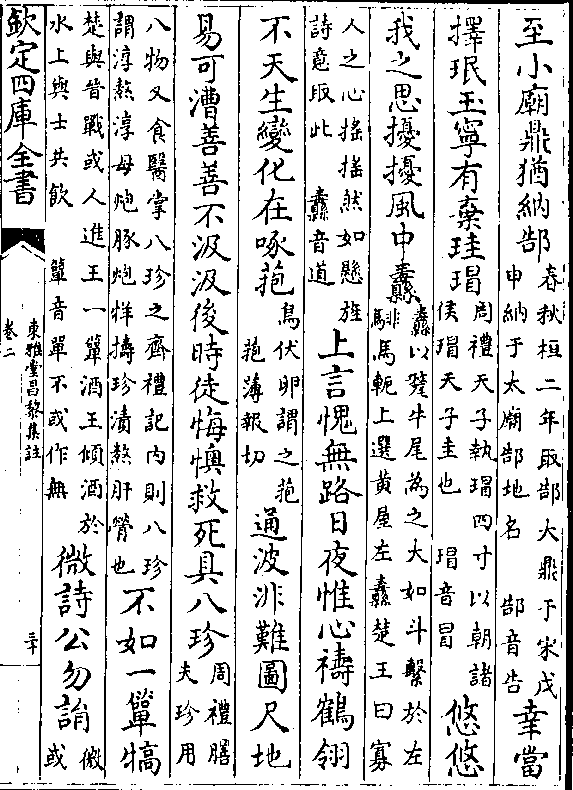 至小廟鼎猶納郜春秋桓二年取郜大鼎于宋戊申納于太廟郜地名　郜音告幸當
擇珉玉寧有棄珪瑁周禮天子執瑁四寸以朝諸侯瑁天子圭也　瑁音冒悠悠
我之思擾擾風中纛纛以犛牛尾為之大如斗繫於左騑馬軛上選黄屋左纛楚王曰寡
人之心搖搖然如懸旌詩意取此　纛音道上言愧無路日夜惟心禱鶴翎
不天生變化在啄菢鳥伏卵謂之菢菢薄報切通波非難圖尺地
易可漕善善不汲汲後時徒悔懊救死具八珍周禮膳夫珍用
八物又食醫掌八珍之齊禮記内則八珍謂淳熬淳母炮豚炮牂擣珍漬熬肝膋也不如一簞犒
楚與晉戰或人進王一簞酒王傾酒於水上與士共飲　簞音單不或作無微詩公勿誚微或
欽定四庫全書
東雅堂昌黎集註
卷二
三十